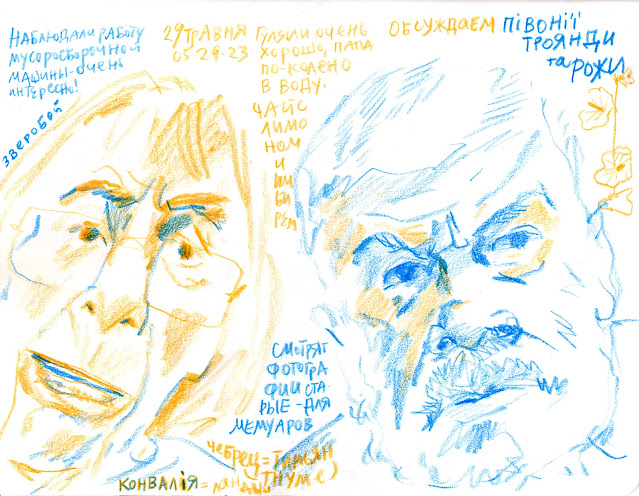 НАБЛЮДАЛИ РАБОТУ
МУСОРОСБОРОЧНОЙ
МАШИНЫ-ОЧЕНЬ
ИНТЕРЕСНО!
ЗВЕРОБОЙ
29 ТРАВНЯ
05.29.23
ГУЛЯЛИ ОЧЕНЬ
ХОРОШО, ПАПА
ПО-КОЛЕНО
В ВОДУ.
ЧАЙ С
ЛИМО
НОМ
И
ИМ
БИ
РЕМ
ОБСУЖДАЕМ ПІВОНІЇ
ТРОЯНДИ
та РОЖИ
СМОТРЯТ
ФОТОГРА
ФИИ СТА
РЫЕ-ДЛЯ
МЕМУАРОВ
чебрец=
КОНВАЛІЯ=